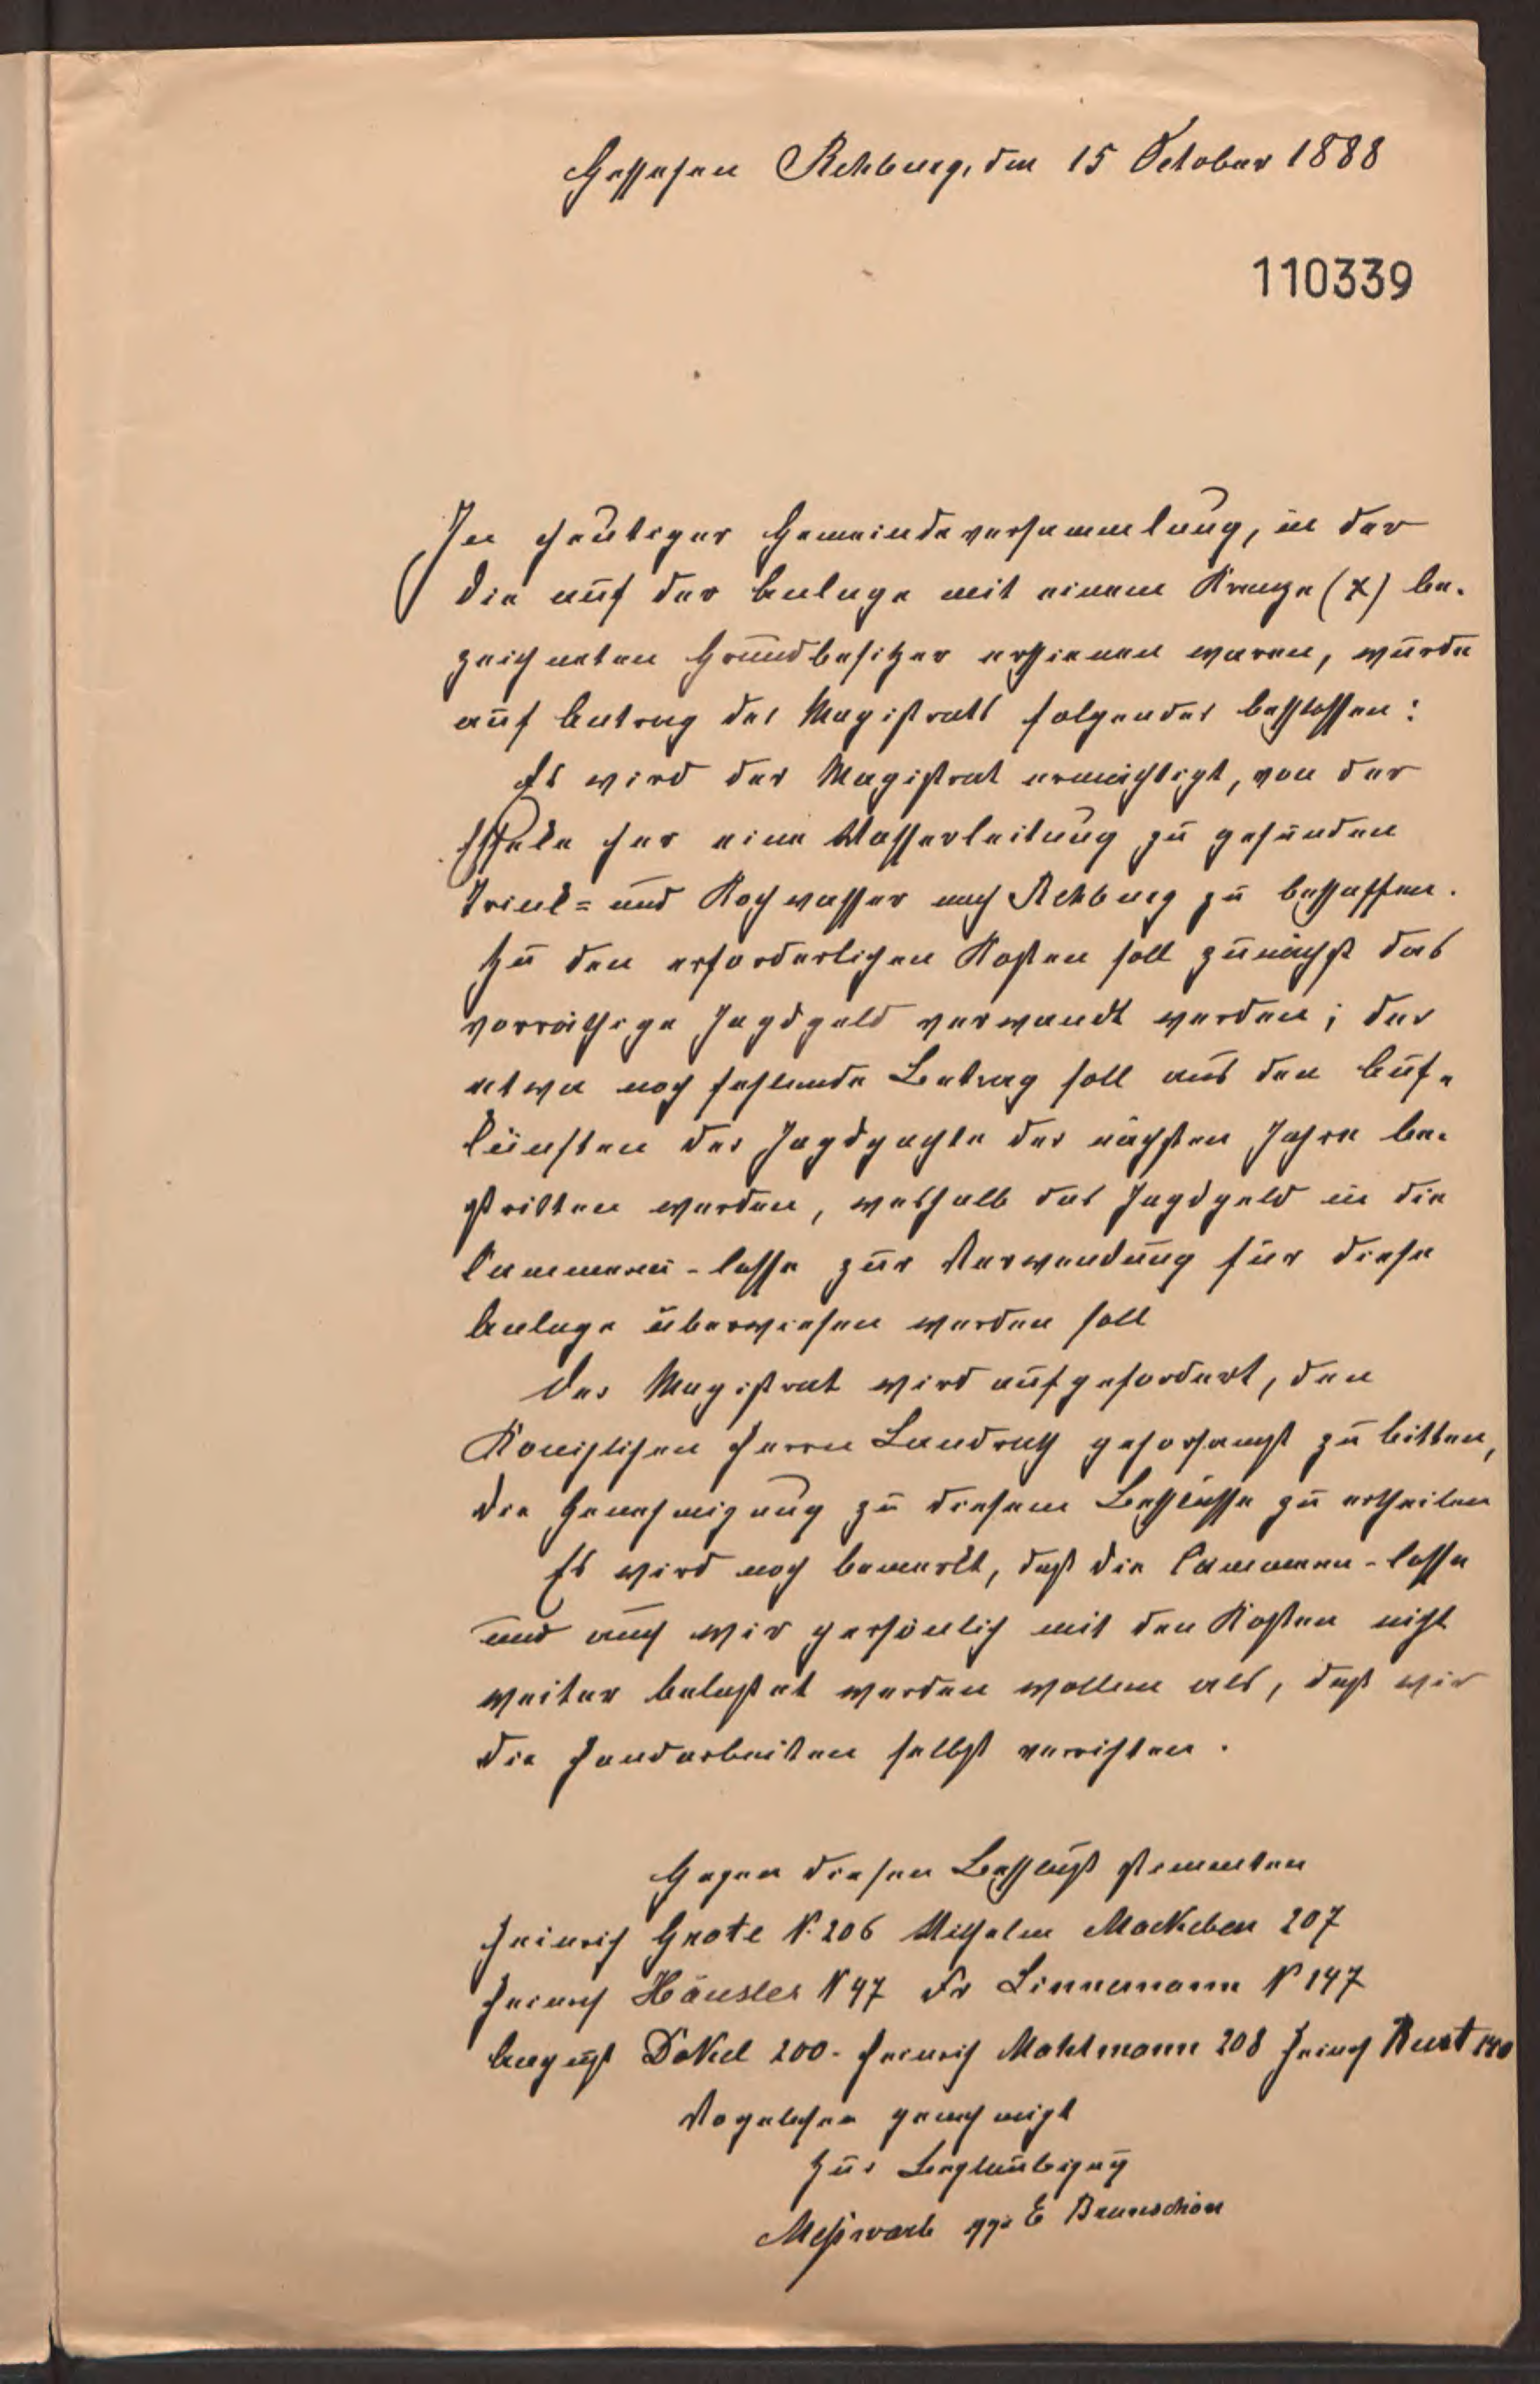 Geschehen Rehburg, den 15 October 1888
110339
In heutiger Gemeindeversammlung, in der
die auf der Anlage mit einem Kreuze (x) be-
zeichneten Grundbesitzer erschienen waren, wurde
auf Antrag des Magistrats folgendes beschlossen:
Es wird der Magistrat ermächtigt, von der
her eine Wasserleitung zu gesunden
Trink= und Kochwasser nach Rehburg zu beschaffen.
Zu den erforderlichen Kosten soll zunächst das
vorräthige Jagdgeld verwandt werden; der
etwa noch fehlende Betrag soll aus den Auf-
künften der Jagdpachte der nächsten Jahre be-
stritten werden, weshalb das Jagdgeld in die
Cämmerei-Casse zur Verwendung für diese
Anlage überwiesen werden soll
Der Magistrat wird aufgefordert, den
Königlichen Herrn Landrath gehorsamst zu bitten,
die Genehmigung zu diesem Beschlusse zu ertheilen
Es wird noch bemerkt, daß die Cämmerei-Casse
und auch wir persönlich mit den Kosten nicht
weiter belastet werden wollen als, daß wir
die Handarbeiten selbst verrichten.
Gegen diesen Beschluß stimmten
Heinrich Grote N. 206 Wilhelm Mackeben 207
Heinrich Häusler N 47 Fr Linnemann N 147
August Dökel 200. Heinrich Mahlmann 208 Heinrich Rust
Vorgelesen genehmigt
Zur Beglaubigung
Meßwarb ggz E Braunschön